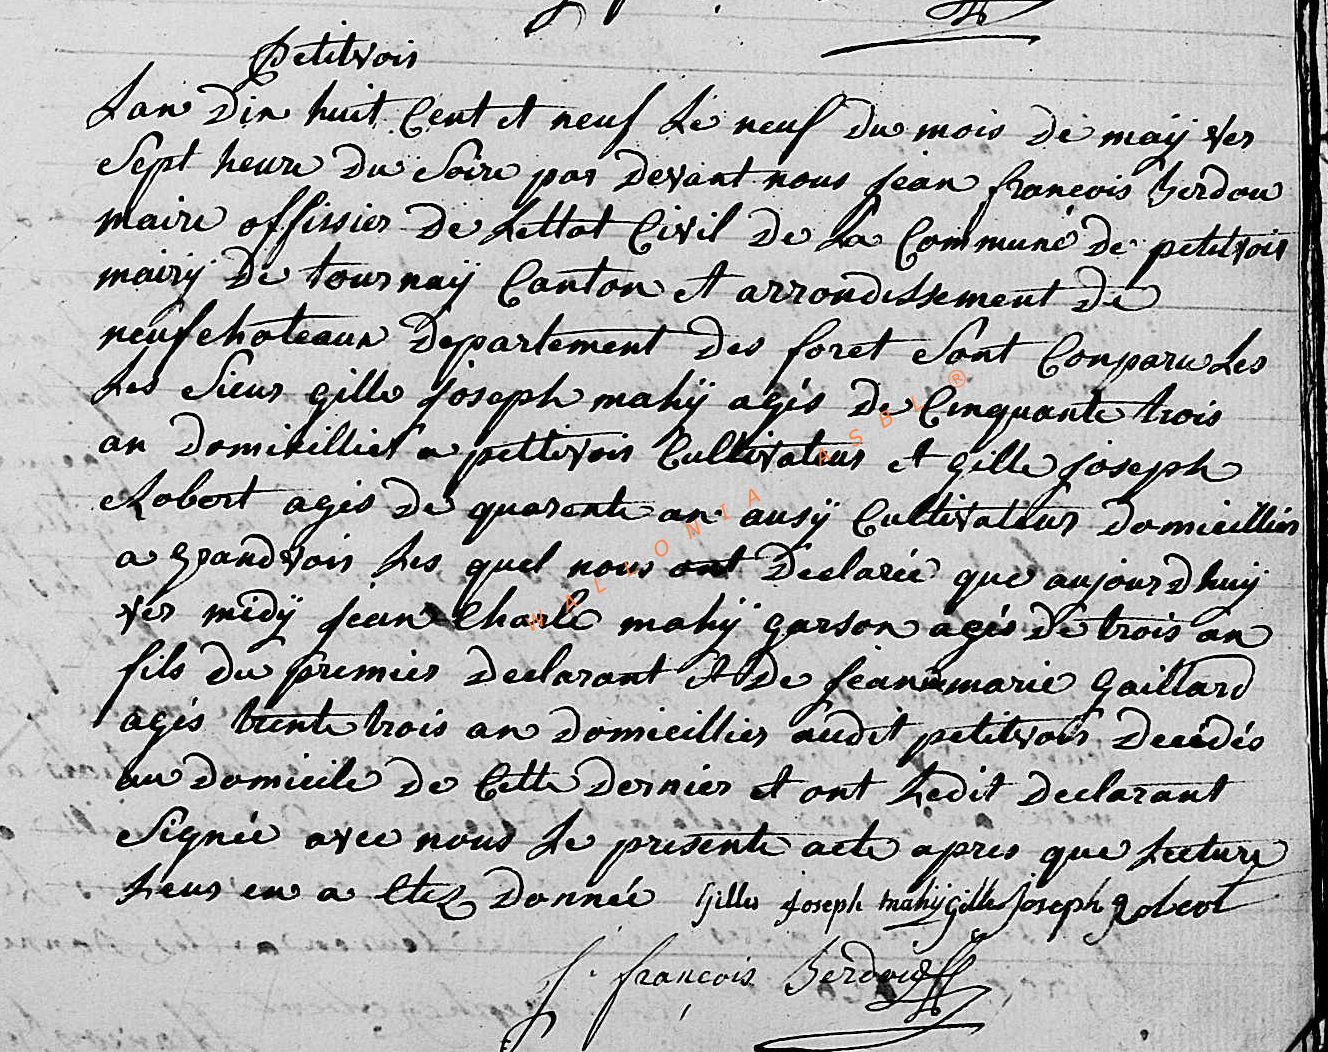 Petitvoir
Lan Dix huit Cent et neuf Le neuf du mois de maÿ ver
Sept heure Du Soire par Devant nous jean françois Berdou
maire offissier De Lettat Civil De La Communé de petitvoir
mairÿ De tournaÿ Canton et arrondissement De
neufchateaux Departement Des foret Sont Conparu Les
Les Sieur gille joseph mahÿ agés De Cinquante trois
an Domicillier a petitvoir Cultivateur et gille joseph
Robert agés De quarente an ausÿ Cultivateur Domicillier
a grandvoir Les quel nous ont Declarée que aujourdhuÿ
ver midÿ jean Charle mahÿ garson agés De trois an
fils Du premier Declarant et De jeannemarie gaillard
agés trente trois an Domicillier audit petitvoir Decedés
au Domicile De Cette Dernier et ont Ledit Declarant
Signée avec nous Le presente acte apres que Lecture
Leur en a Etez Donnée Gilles joseph mahÿ gille joseph Robert
J. françois Berdou
WALLONIA ASBL ®